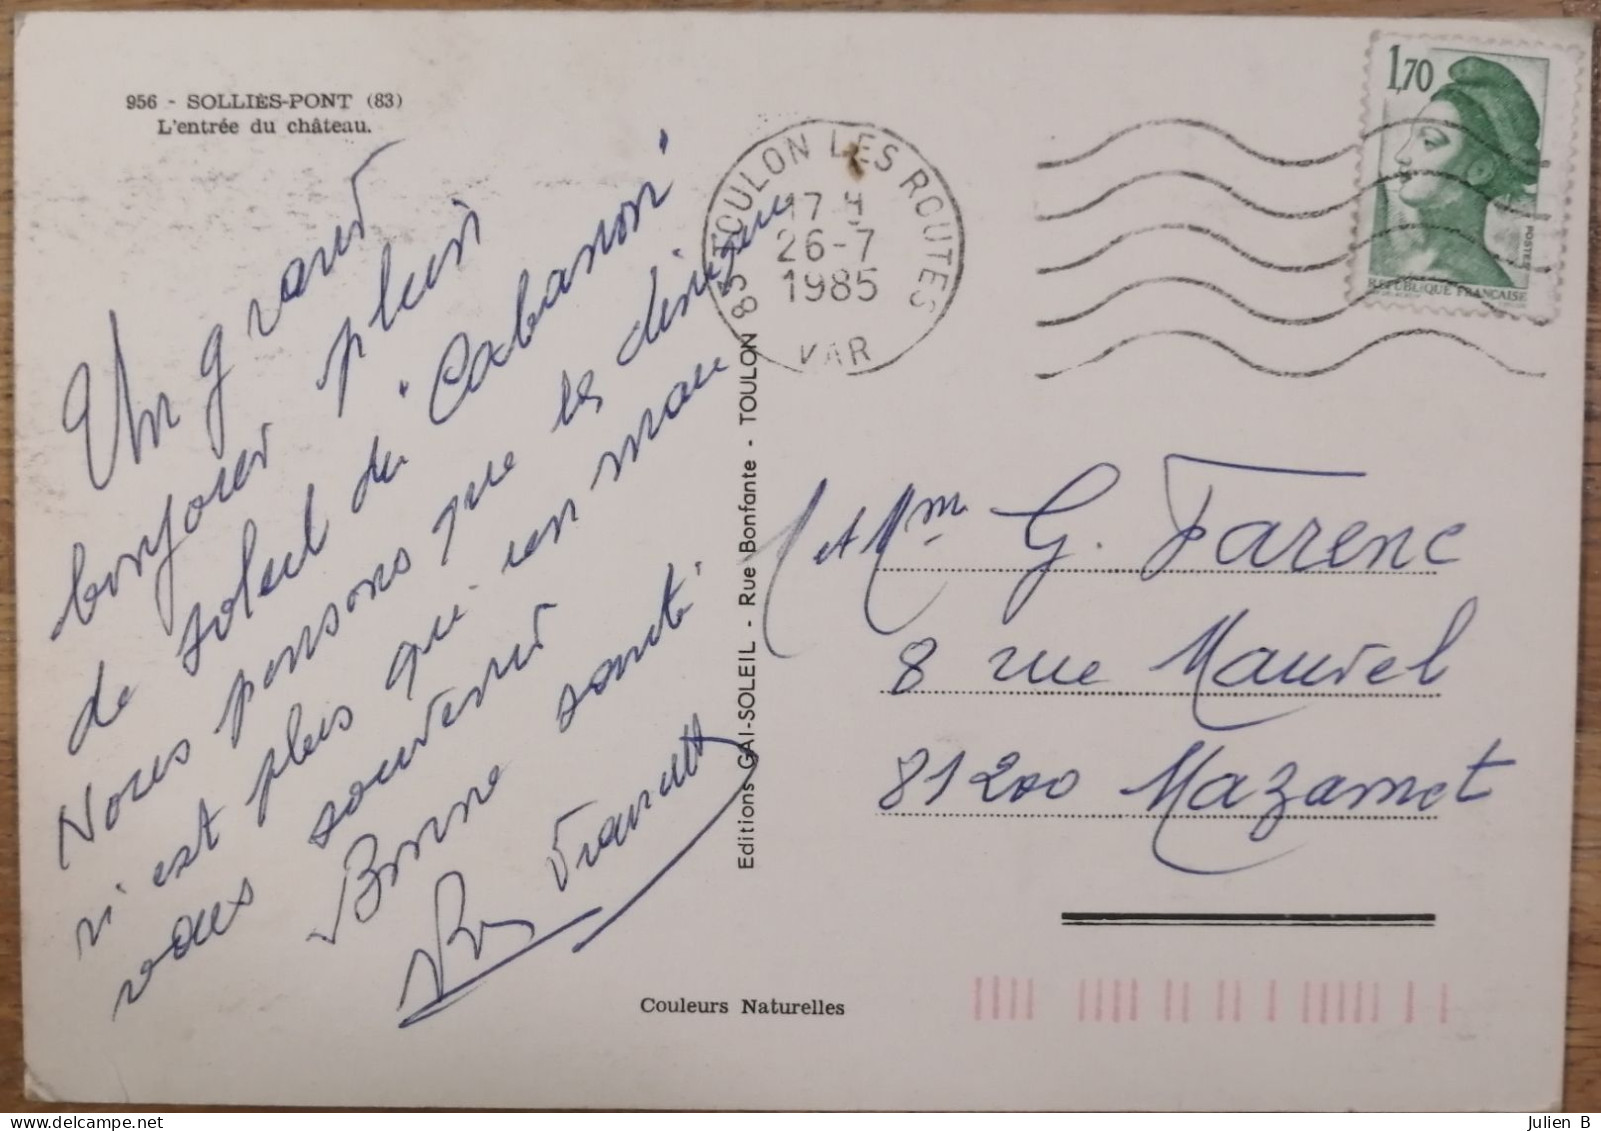 956 - SOLLIÈS-PONT (83)
L'entrée du château.
Un grand
bonjour plein
de soleil du "Cabanon"
Nous pensons que le
n'est plus qu'un
vous souvenir
Bonne santé.
83 TOULON LES ROUTES
17 H
26-7
1985
VAR
1,70
POSTES
REPUBLIQUE FRANÇAISE
Editions GAI-SOLEIL - Rue Bonfante - TOULON
M et Mme G. Farenc
8 rue Maurel
81200 Mazamet
Couleurs Naturelles
Julien B